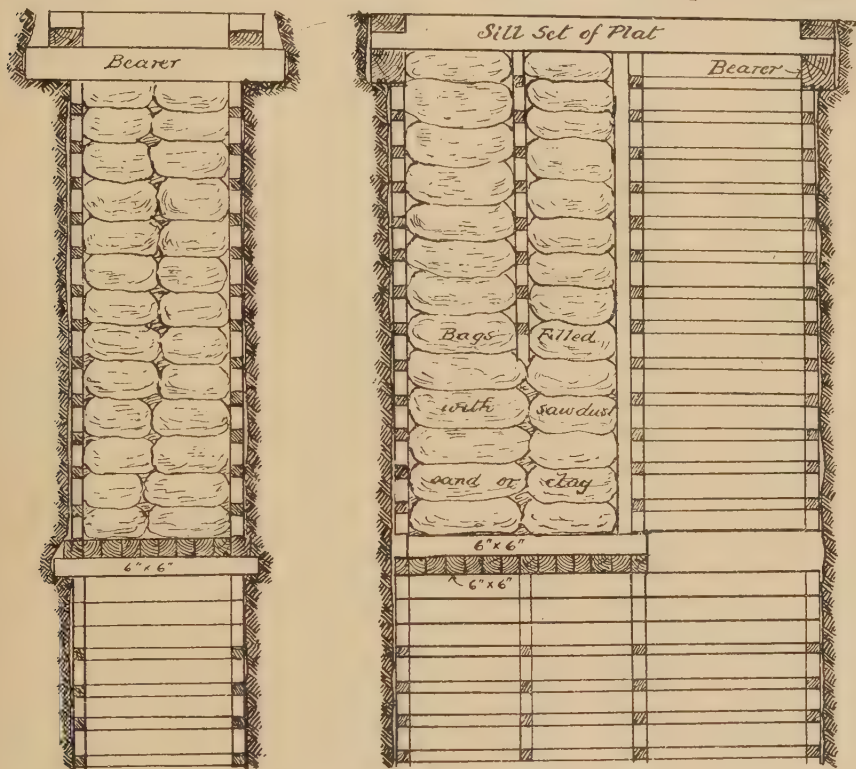 Bearer
6"x 6"
Sill Set of Plat
Bearer
Bags Filled
with sawdust
sand or clay
6"x 6"
6"x 6"